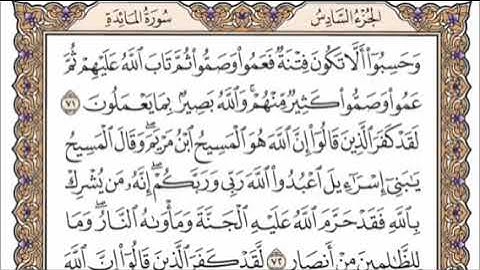 الجزء السادس
سورة المائدة
وَحَسِبُوٓا۟ أَلَّا تَكُونَ فِتْنَةٌ فَعَمُوا۟ وَصَمُّوا۟ ثُمَّ تَابَ ٱللَّهُ عَلَيْهِمْ ثُمَّ
عَمُوا۟ وَصَمُّوا۟ كَثِيرٌ مِّنْهُمْ ۚ وَٱللَّهُ بَصِيرٌۢ بِمَا يَعْمَلُونَ ٧١
لَقَدْ كَفَرَ ٱلَّذِينَ قَالُوٓا۟ إِنَّ ٱللَّهَ هُوَ ٱلْمَسِيحُ ٱبْنُ مَرْيَمَ ۖ وَقَالَ ٱلْمَسِيحُ
يَٰبَنِىٓ إِسْرَٰٓءِيلَ ٱعْبُدُوا۟ ٱللَّهَ رَبِّى وَرَبَّكُمْ ۖ إِنَّهُۥ مَن يُشْرِكْ
بِٱللَّهِ فَقَدْ حَرَّمَ ٱللَّهُ عَلَيْهِ ٱلْجَنَّةَ وَمَأْوَىٰهُ ٱلنَّارُ ۖ وَمَا
لِلظَّٰلِمِينَ مِنْ أَنصَارٍ ٧٢ لَّقَدْ كَفَرَ ٱلَّذِينَ قَالُوٓا۟ إِنَّ ٱللَّهَ